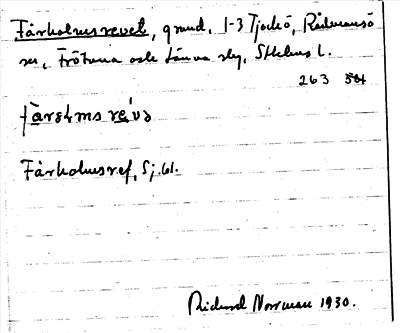 Fårholmsrevet, grund, 1-3 Tjockö, Rådmansö
sn, Frötuna och Länna slg, Sthlms l.
263 584
fårɷlmsre'və
Fårholmsref, Sj. 61.
Rickard Norrman 1930.